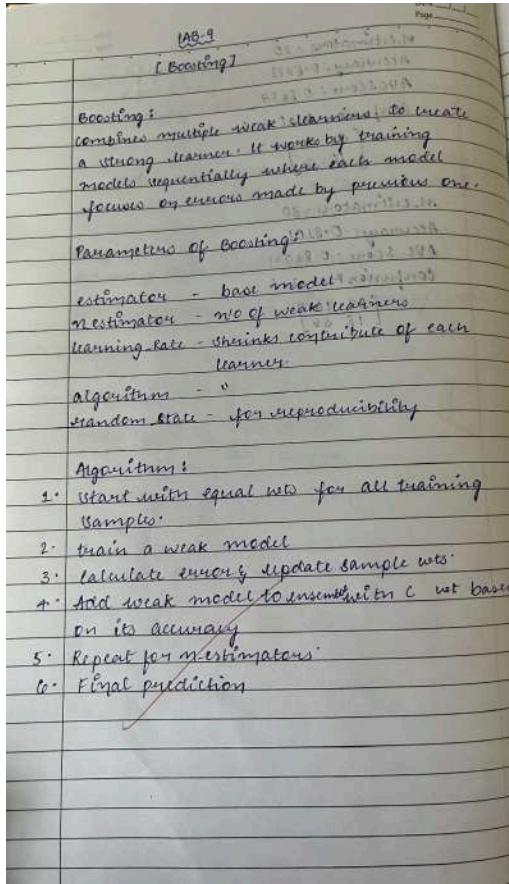 Page
LAB-9
[Boosting]
Boosting:
combines multiple weak learners to create
a strong learner. It works by training
models sequentially where each model
focuses on errors made by previous one.
Parameters of Boosting:
estimator - base model
n_estimator - no of weak learners
learning_Rate - shrinks contribute of each
learner.
algorithm - "
random_state - for reproducibility
Algorithm:
1. start with equal wts for all training
samples.
2. train a weak model
3. calculate error & update sample wts.
4. Add weak model to ensemble with C wt base
on its accuracy
5. Repeat for n-estimators.
6. Final prediction